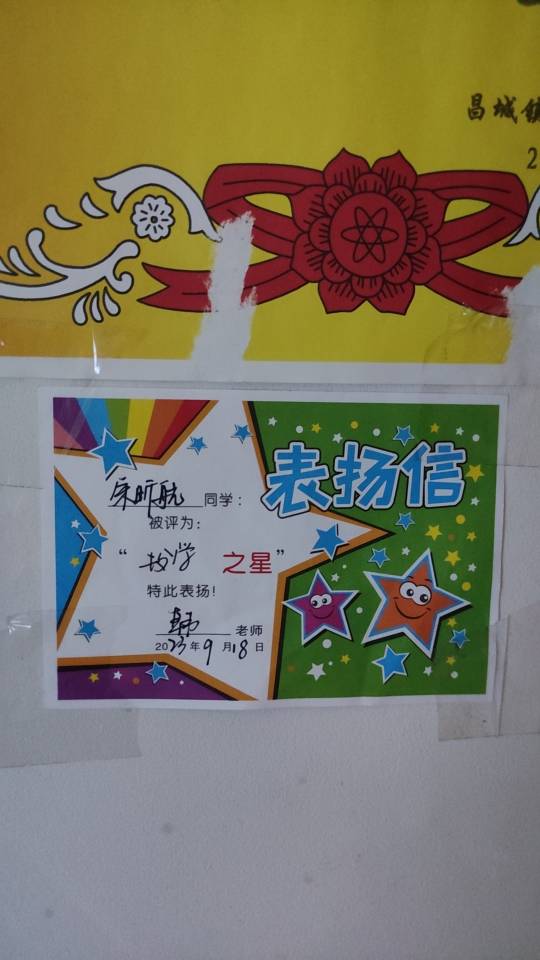 昌城镇
2
表扬信
宋昕航同学：
被评为：
“数学 之星”
特此表扬！
韩 老师
2023年9月18日